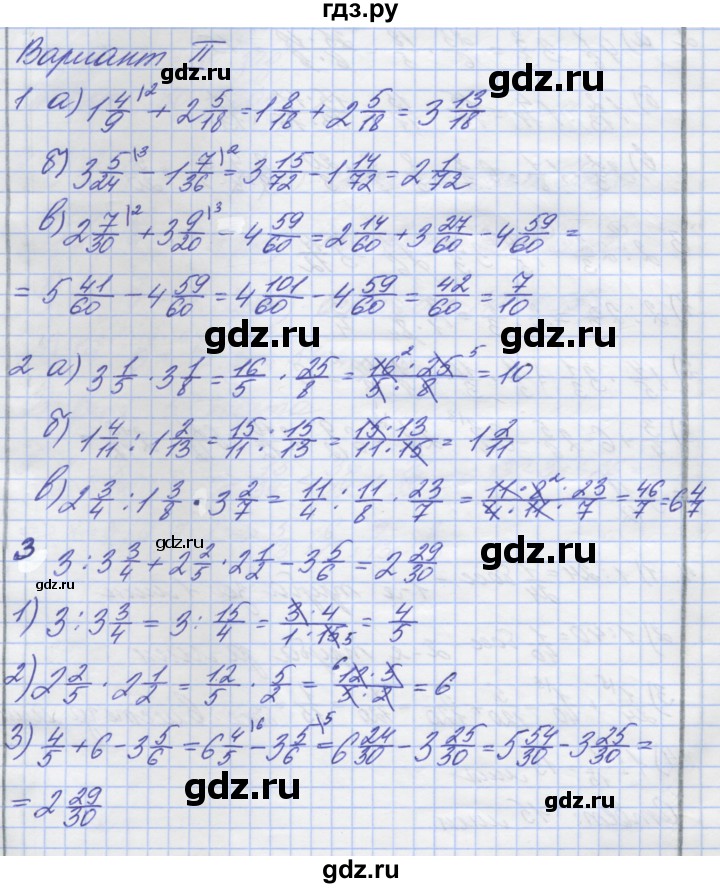 гдз.ру
Вариант II
1 а) 1 4/9 |2 + 2 5/18 = 1 8/18 + 2 5/18 = 3 13/18
gdz.ru gdz.ru
б) 3 5/24 |3 - 1 7/36 |2 = 3 15/72 - 1 14/72 = 2 1/72
в) 2 7/30 |2 + 3 9/20 |3 - 4 59/60 = 2 14/60 + 3 27/60 - 4 59/60 =
= 5 41/60 - 4 59/60 = 4 101/60 - 4 59/60 = 42/60 = 7/10
gdz.ru gdz.ru
2 а) 3 1/5 · 3 1/8 = 16/5 · 25/8 = 16 2 · 25 5 / 5 · 8 = 10
б) 1 4/11 : 1 2/13 = 15/11 : 15/13 = 15 · 13 / 11 · 15 = 1 2/11
в) 2 3/4 : 1 3/8 · 3 2/7 = 11/4 : 11/8 · 23/7 = 11 · 8 2 · 23 / 4 · 11 · 7 = 46/7 = 6 4/7
gdz.ru gdz.ru
3 3 : 3 3/4 + 2 2/5 · 2 1/2 - 3 5/6 = 2 29/30
1) 3 : 3 3/4 = 3 : 15/4 = 3 · 4 / 1 · 15 5 = 4/5
2) 2 2/5 · 2 1/2 = 12/5 · 5/2 = 6 12 · 5 / 5 · 2 = 6
3) 4/5 + 6 - 3 5/6 = 6 4/5 |6 - 3 5/6 |5 = 6 24/30 - 3 25/30 = 5 54/30 - 3 25/30 =
gdz.ru gdz.ru
= 2 29/30
gdz.ru